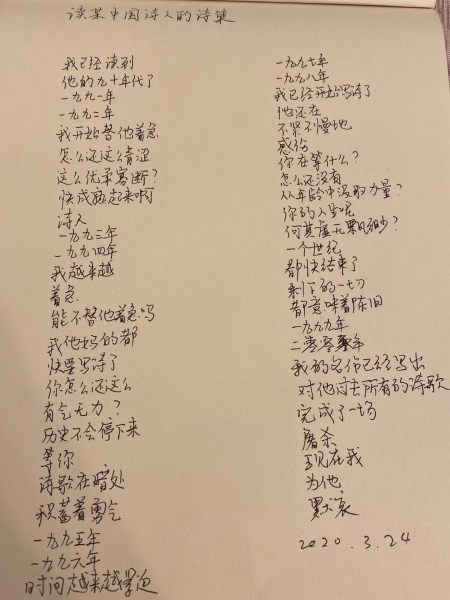 读某中国诗人的诗集
我已经读到
他的九十年代了
一九九一年
一九九二年
我开始替他着急
怎么还这么青涩
这么优柔寡断？
快成熟起来啊
诗人
一九九三年
一九九四年
我越来越
着急
能不替他着急吗
我他妈的都
快要写诗了
你怎么还这么
有气无力？
历史不会停下来
等你
诗歌在暗处
积蓄着勇气
一九九五年
一九九六年
时间越来越紧迫
一九九七年
一九九八年
我已经开始写诗了
他还在
不紧不慢地
感伤
你在等什么？
怎么还没有
从年龄中汲取力量？
你的人生呢
何其虚无
一个世纪
都快结束了
剩下的一切
都意味着陈旧
一九九九年
二零零零年
我的名作已经写出
对他过去所有的诗歌
完成了一场
屠杀
现在我
为他
默哀
2020.3.24